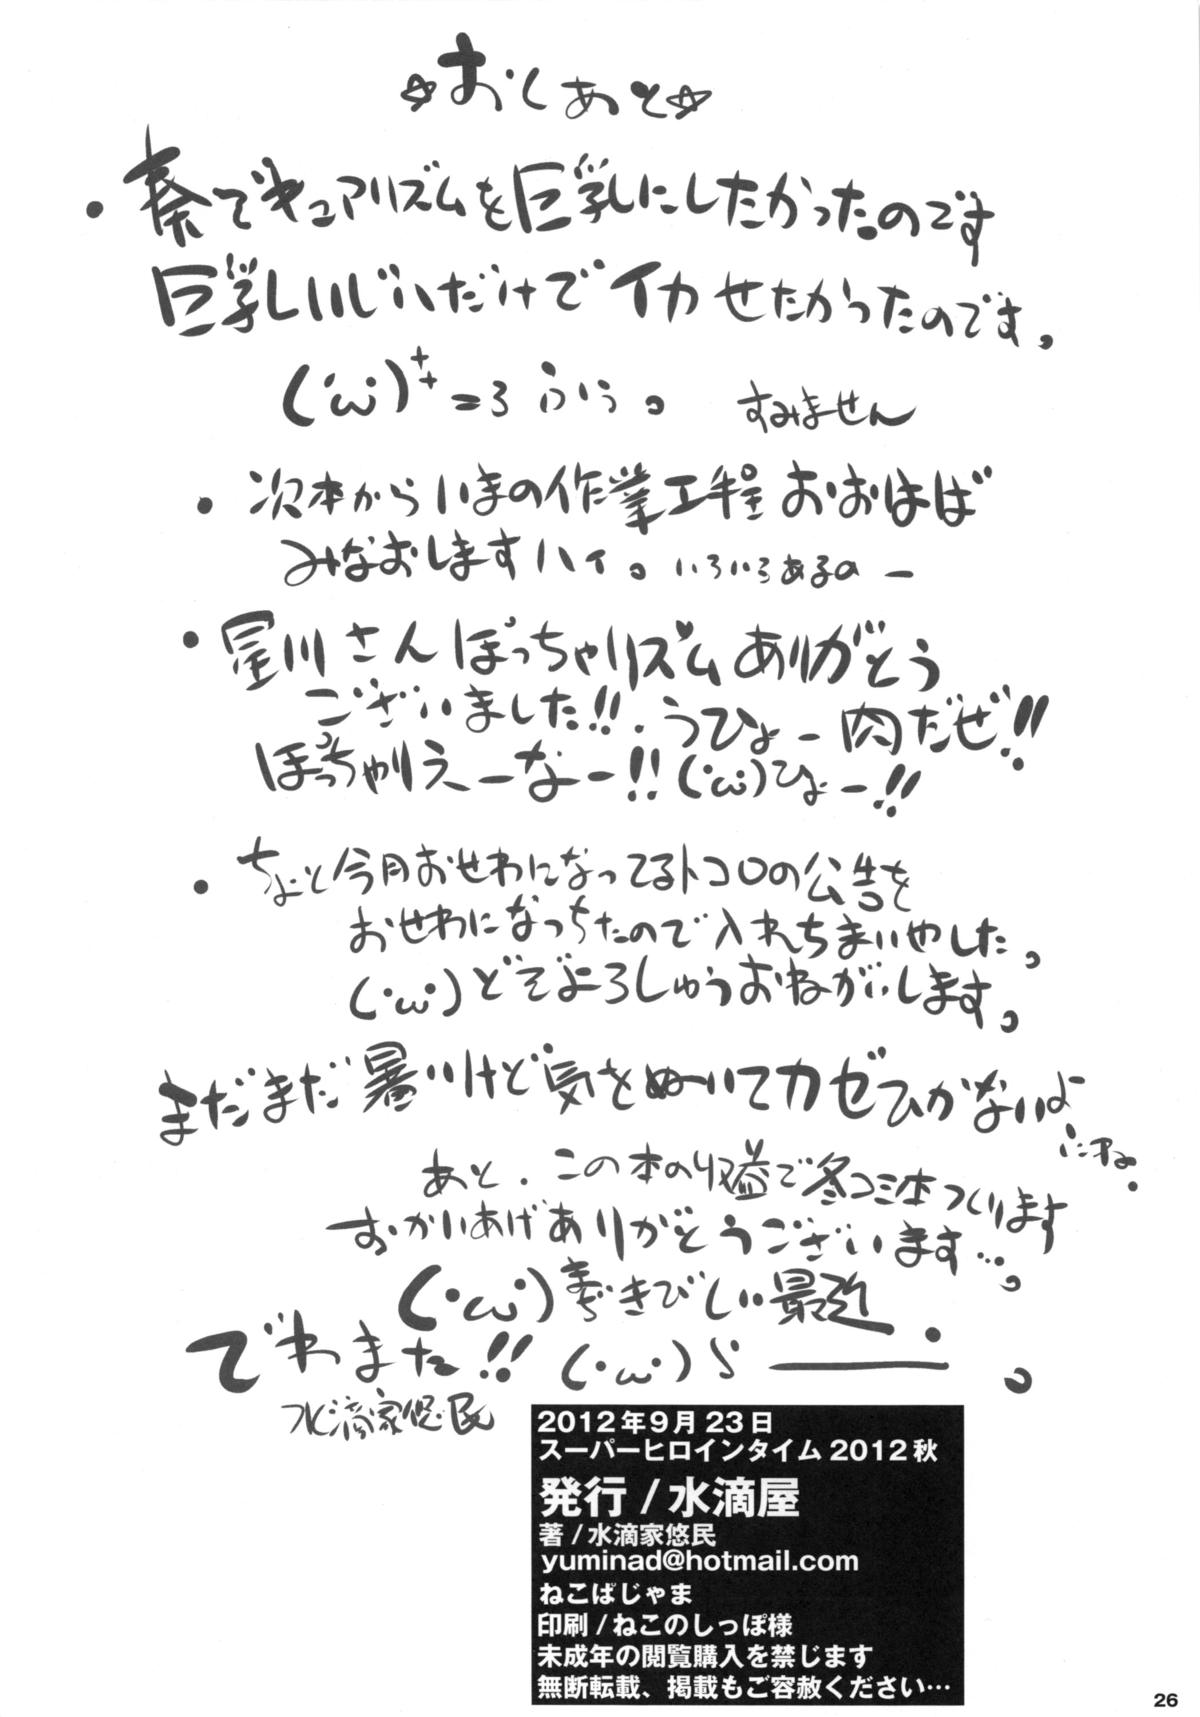 ☆おしあと☆
(・ω・)++=3 ふぅ。 すみません
・次本からいまの作業工程おおはば
みなおしますハイ。いろいろあるのー
・星川さんぽっちゃリズムありがとう
ございました!!.うひょー肉だぜ!!
ぽっちゃりえーなー!!(・ω・)ひょー!!
・ちょと今月おせわになってるトコロの公告を
おせわになっちたので入れちまいやした。
(・ω・)どぞよろしゅうおねがいします。
まだまだ暑いけど気をぬいてカゼひかないよ
にね。
あと、この本の収益で冬コミ本つくります
おかいあげありがとうございます…。
(・ω・) きびしい最近
でわまた!! (・ω・)ﾉｼ ー 。
水滴家悠民
2012年9月23日
スーパーヒロインタイム2012秋
発行/水滴屋
著/水滴家悠民
yuminad@hotmail.com
ねこぱじゃま
印刷/ねこのしっぽ様
未成年の閲覧購入を禁じます
無断転載、掲載もご容赦ください…
26